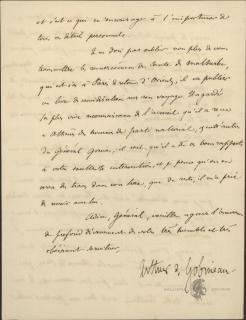 et c'est ce qui m'encourage à l'importuner de
tous ces détails personnels.
Je ne dois pas oublier non plus de vous
transmettre les remerciements du Comte de
qui est ici à Paris de retour d'Orient, il va publier
un livre de considérations sur son voyage. Il garde
la plus vive reconnaissance de l'accueil qu'il a reçu
à Athènes des hommes du parti national,
du général il sait qu'il a dû ces bons rapports
à votre excellente intervention, et je pense qu'on en
verra des traces dans son livre, que du reste, il m'a prié
de revoir avec lui.
Adieu, Général, veuillez agréer l'assurance
du profond dévouement de votre très humble et très
obéissant serviteur.
Arthur de Gobineau